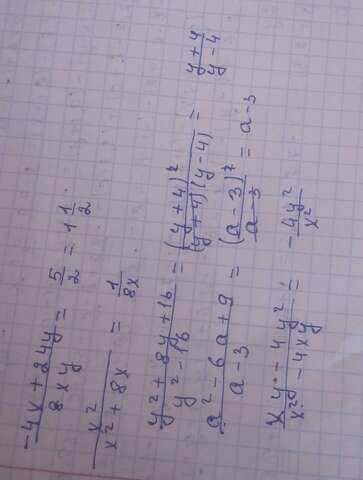 (-4x + 24y)/(8xy) = 5/2 = 1 1/2
x²/(x² + 8x) = 1/(8x)
(y² + 8y + 16)/(y² - 16) = (y + 4)²/((y + 4)(y - 4)) = (y + 4)/(y - 4)
(a² - 6a + 9)/(a - 3) = (a - 3)²/(a - 3) = a - 3
(xy - 4y²)/(x² - 4xy) = -4y²/x²